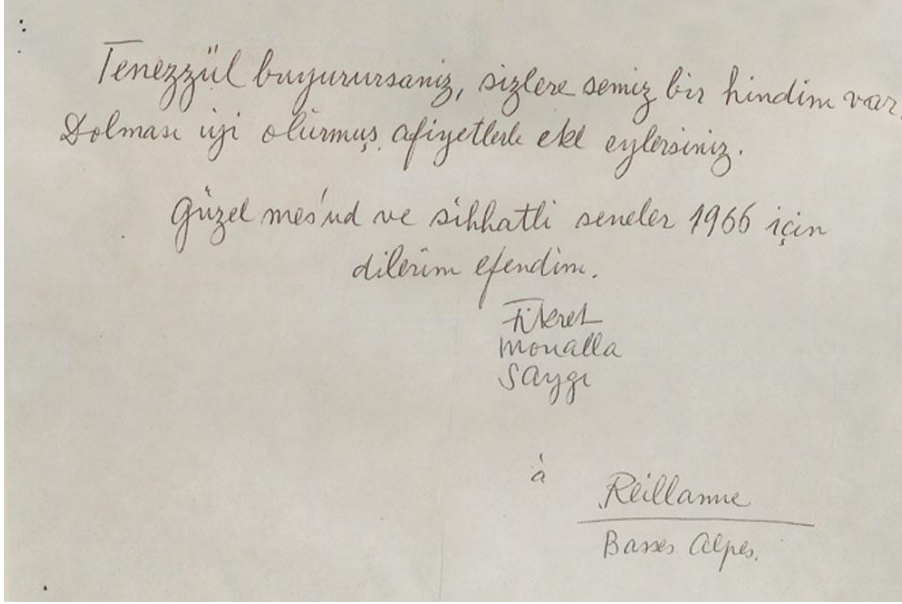 Tenezzül buyurursanız, sizlere semiz bir hindim var.
Dolması iyi olurmuş afiyetlerle ekl eylersiniz.
Güzel mes'ud ve sıhhatli seneler 1966 için
dilerim efendim.
Fikret
Moualla
Saygı
à
Reillanne
Basses Alpes.